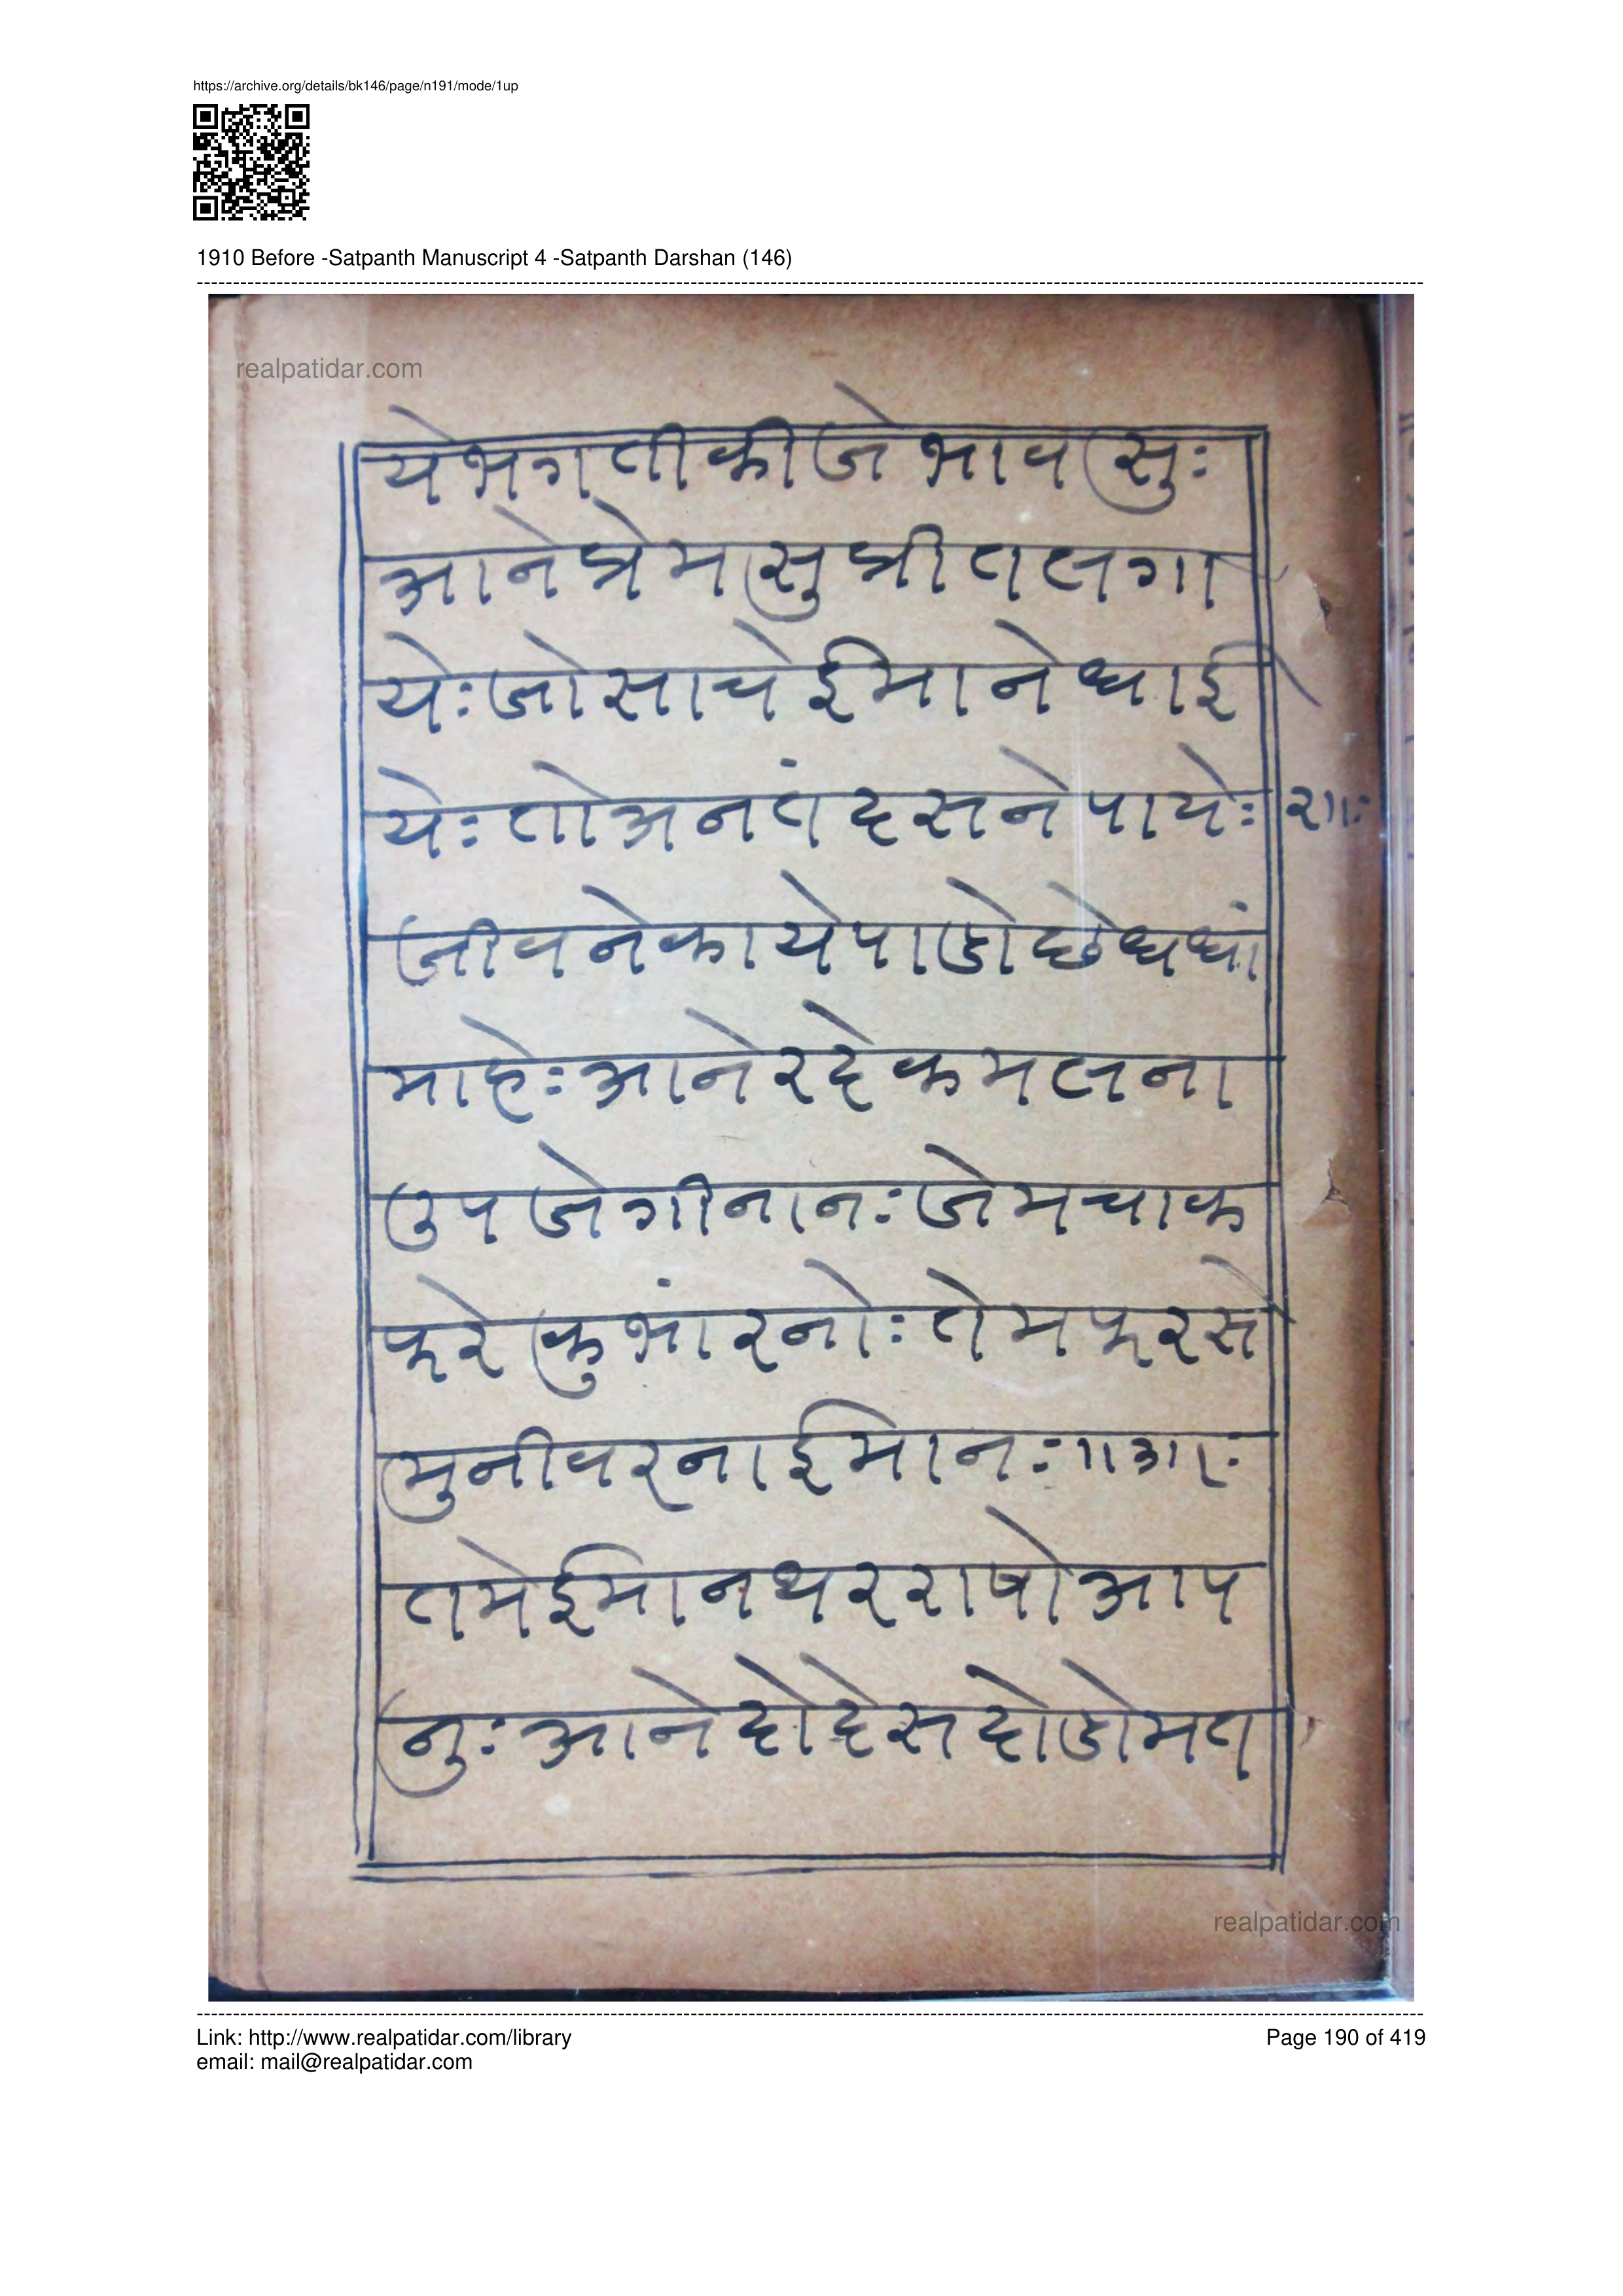 https://archive.org/details/bk146/page/n191/mode/1up
1910 Before -Satpanth Manuscript 4 -Satpanth Darshan (146)
realpatidar.com
येभगतीकीजेभावसुः
आनेप्रेमसुप्रीतलगा
येःजोसाचेईमानेधाई
येःतोअनतंदसनेपायेः
जीवनेकायेपाडोछेधधां
माहेःआनेरदेकमलना
उपजेगीनानःजेमचाक
फरेकुभांरनोःतेमफरसे
मुनीवरनाईमानः॥३॥ः
तमेईमानथरराषोआप
नुःआनेदोदेसदोडोमत
realpatidar.com
Link: http://www.realpatidar.com/library
Page 190 of 419
email: mail@realpatidar.com